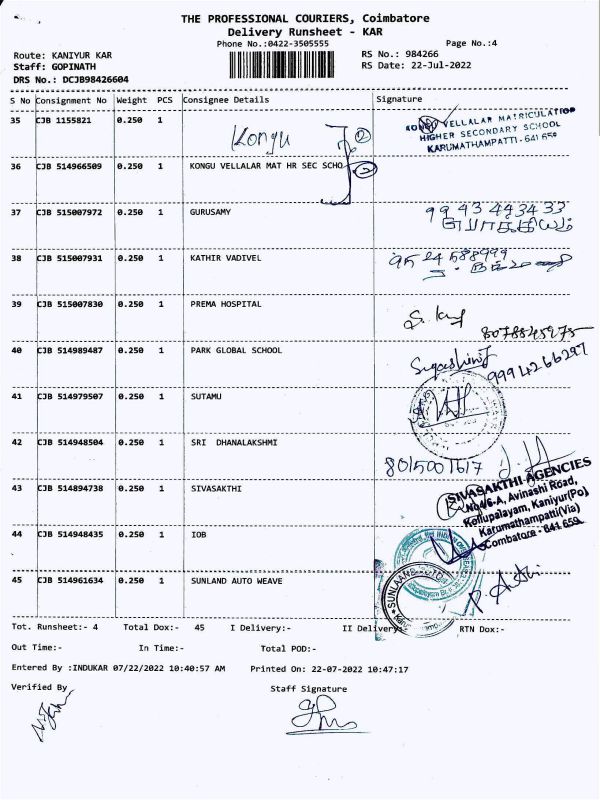 THE PROFESSIONAL COURIERS, Coimbatore
Delivery Runsheet - KAR
Phone No.:0422-3505555
Page No.:4
Route: KANIYUR KAR
RS No.: 984266
Staff: GOPINATH
RS Date: 22-Jul-2022
DRS No.: DCJB98426604
S No Consignment No Weight PCS Consignee Details Signature
35 CJB 1155821 0.250 1 Kongu
KONGU VELLALAR MATRICULATION
HIGHER SECONDARY SCHOOL
KARUMATHAMPATTI - 641 659
36 CJB 514966509 0.250 1 KONGU VELLALAR MAT HR SEC SCHO
37 CJB 515007972 0.250 1 GURUSAMY 99 43 443433
பாக்கியம்
38 CJB 515007931 0.250 1 KATHIR VADIVEL 9524588999
39 CJB 515007830 0.250 1 PREMA HOSPITAL
8078845275
40 CJB 514989487 0.250 1 PARK GLOBAL SCHOOL
9994266297
41 CJB 514979507 0.250 1 SUTAMU
42 CJB 514948504 0.250 1 SRI DHANALAKSHMI 8015001617
43 CJB 514894738 0.250 1 SIVASAKTHI
SIVASAKTHI AGENCIES
No.4/6-A, Avinashi Road,
Kollupalayam, Kaniyur(Po)
Karumathampatti(Via)
Coimbatore - 641 659
44 CJB 514948435 0.250 1 IOB
45 CJB 514961634 0.250 1 SUNLAND AUTO WEAVE
Tot. Runsheet:- 4 Total Dox:- 45 I Delivery:- II Delivery:- RTN Dox:-
Out Time:- In Time:- Total POD:-
Entered By :INDUKAR 07/22/2022 10:40:57 AM Printed On: 22-07-2022 10:47:17
Verified By Staff Signature